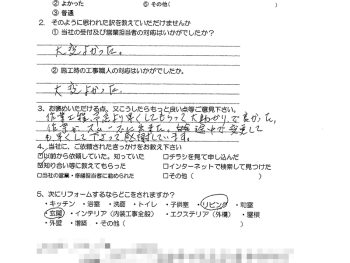 ② よかった ⑥ その他(
③ 普通
2. そのように思われた訳を教えていただけませんか
① 当社の受付及び営業担当者の対応はいかがでしたか?
大変よかった。
② 施工時の工事職人の対応はいかがでしたか?
大変よかった
3. お褒めいただける点、又こうしたらもっと良い点等ご意見下さい。
作業工程 予定より早くしてもらって大助かりで良かった。
作業がスムーズに出来た。 途中で変更して
も きして下さって感謝しています。
4. 当社に、ご依頼されたきっかけをお教え下さい
☑以前から依頼していた。知っていた □チラシを見て申し込んだ
□知り合い等に教えてもらった □インターネットで検索して見つけた
□当社の営業・現場担当者に勧められた □その他( )
5. 次にリフォームするならどこをされますか?
・キッチン ・浴室 ・洗面 ・トイレ ・子供室 ・リビング ・和室
・玄関 ・インテリア(内装工事全般) ・エクステリア(外構) ・屋根
・外壁 ・増築 ・その他( )